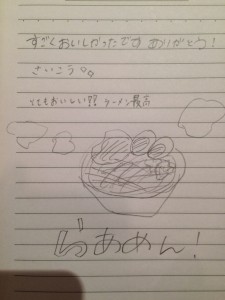 すごくおいしかったです ありがとう！
さいこう。。
とてもおいしい?? ラーメン最高
らあめん！